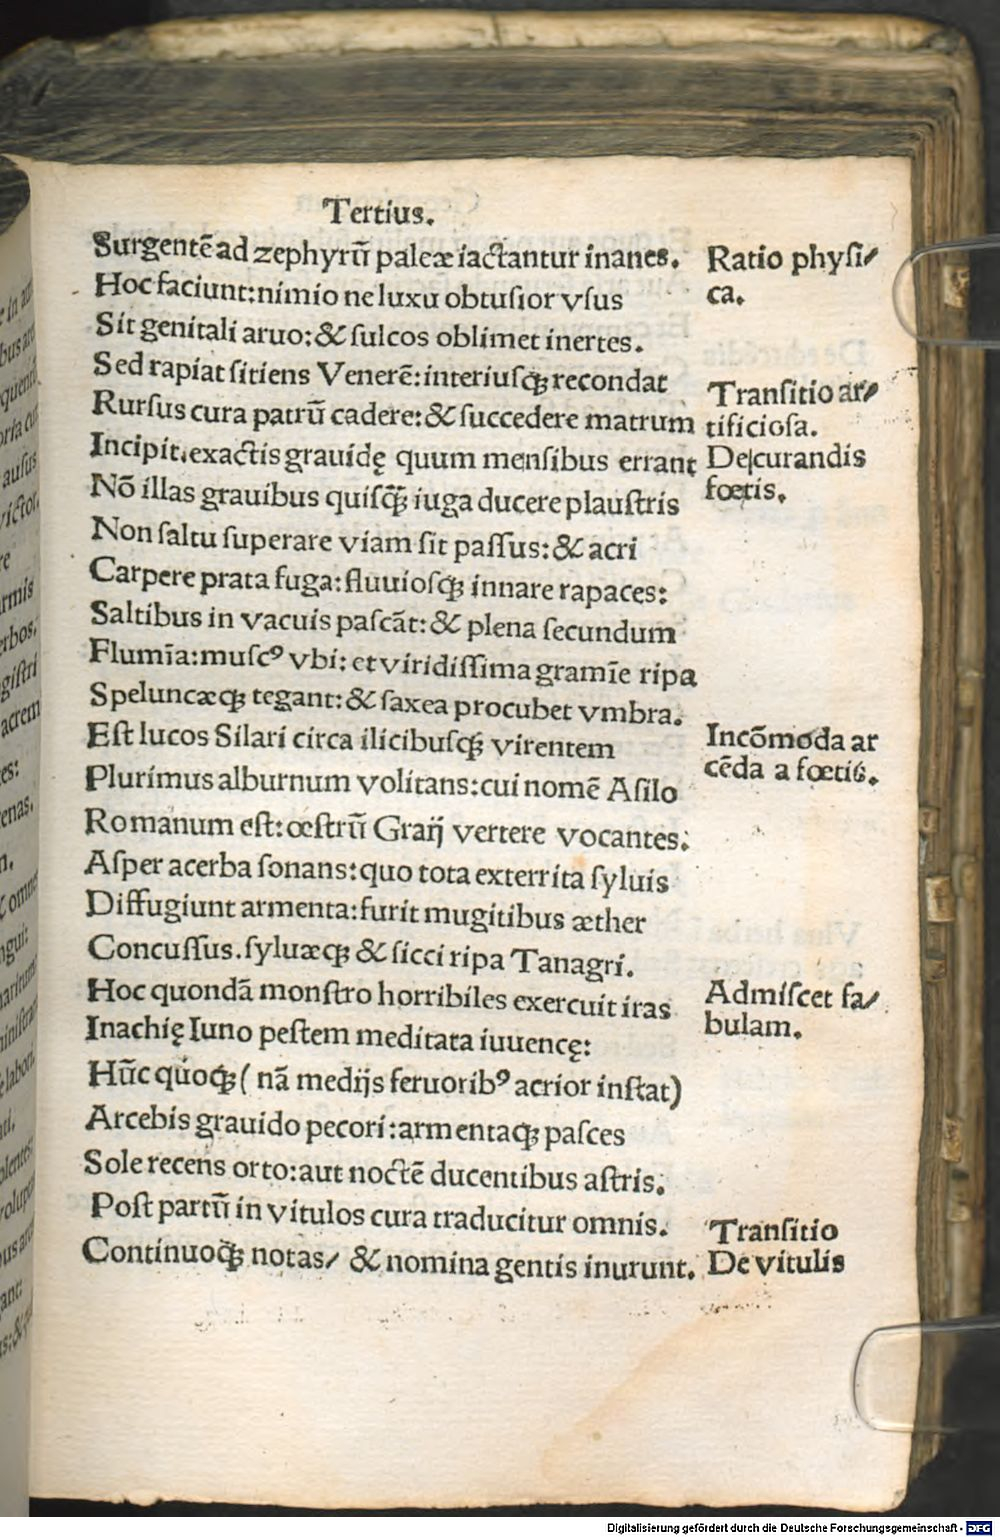 Tertius.
Surgentē ad zephyrū paleæ iactantur inanes.
Ratio physi/
ca.
Hoc faciunt: nimio ne luxu obtusior vsus
Sit genitali aruo: & sulcos oblimet inertes.
Sed rapiat sitiens Venerē: interiusqꝫ recondat
Transitio ar/
tificiosa.
Rursus cura patrū cadere: & succedere matrum
Incipit. exactis grauidę quum mensibus errant
De curandis
foetis.
Nō illas grauibus quisqꝫ̄ iuga ducere plaustris
Non saltu superare viam sit passus: & acri
Carpere prata fuga: fluuiosqꝫ innare rapaces:
Saltibus in vacuis pascāt: & plena secundum
Flumīa: muscꝰ vbi: et viridissima gramīe ripa
Speluncæqꝫ tegant: & saxea procubet vmbra.
Est lucos Silari circa ilicibusqꝫ virentem
Incōmoda ar
cēda a fœtis.
Plurimus alburnum volitans: cui nomē Asilo
Romanum est: œstrū Graij vertere vocantes:
Asper acerba sonans: quo tota exterrita syluis
Diffugiunt armenta: furit mugitibus æther
Concussus. syluæqꝫ & sicci ripa Tanagri.
Hoc quondā monstro horribiles exercuit iras
Admiscet fa/
bulam.
Inachię Iuno pestem meditata iuuencę:
Hūc quoqꝫ ( nā medijs feruoribꝰ acrior instat)
Arcebis grauido pecori: armentaqꝫ pasces
Sole recens orto: aut noctē ducentibus astris.
Post partū in vitulos cura traducitur omnis.
Transitio
De vitulis
Continuoqꝫ notas/ & nomina gentis inurunt.
Digitalisierung gefördert durch die Deutsche Forschungsgemeinschaft - DFG